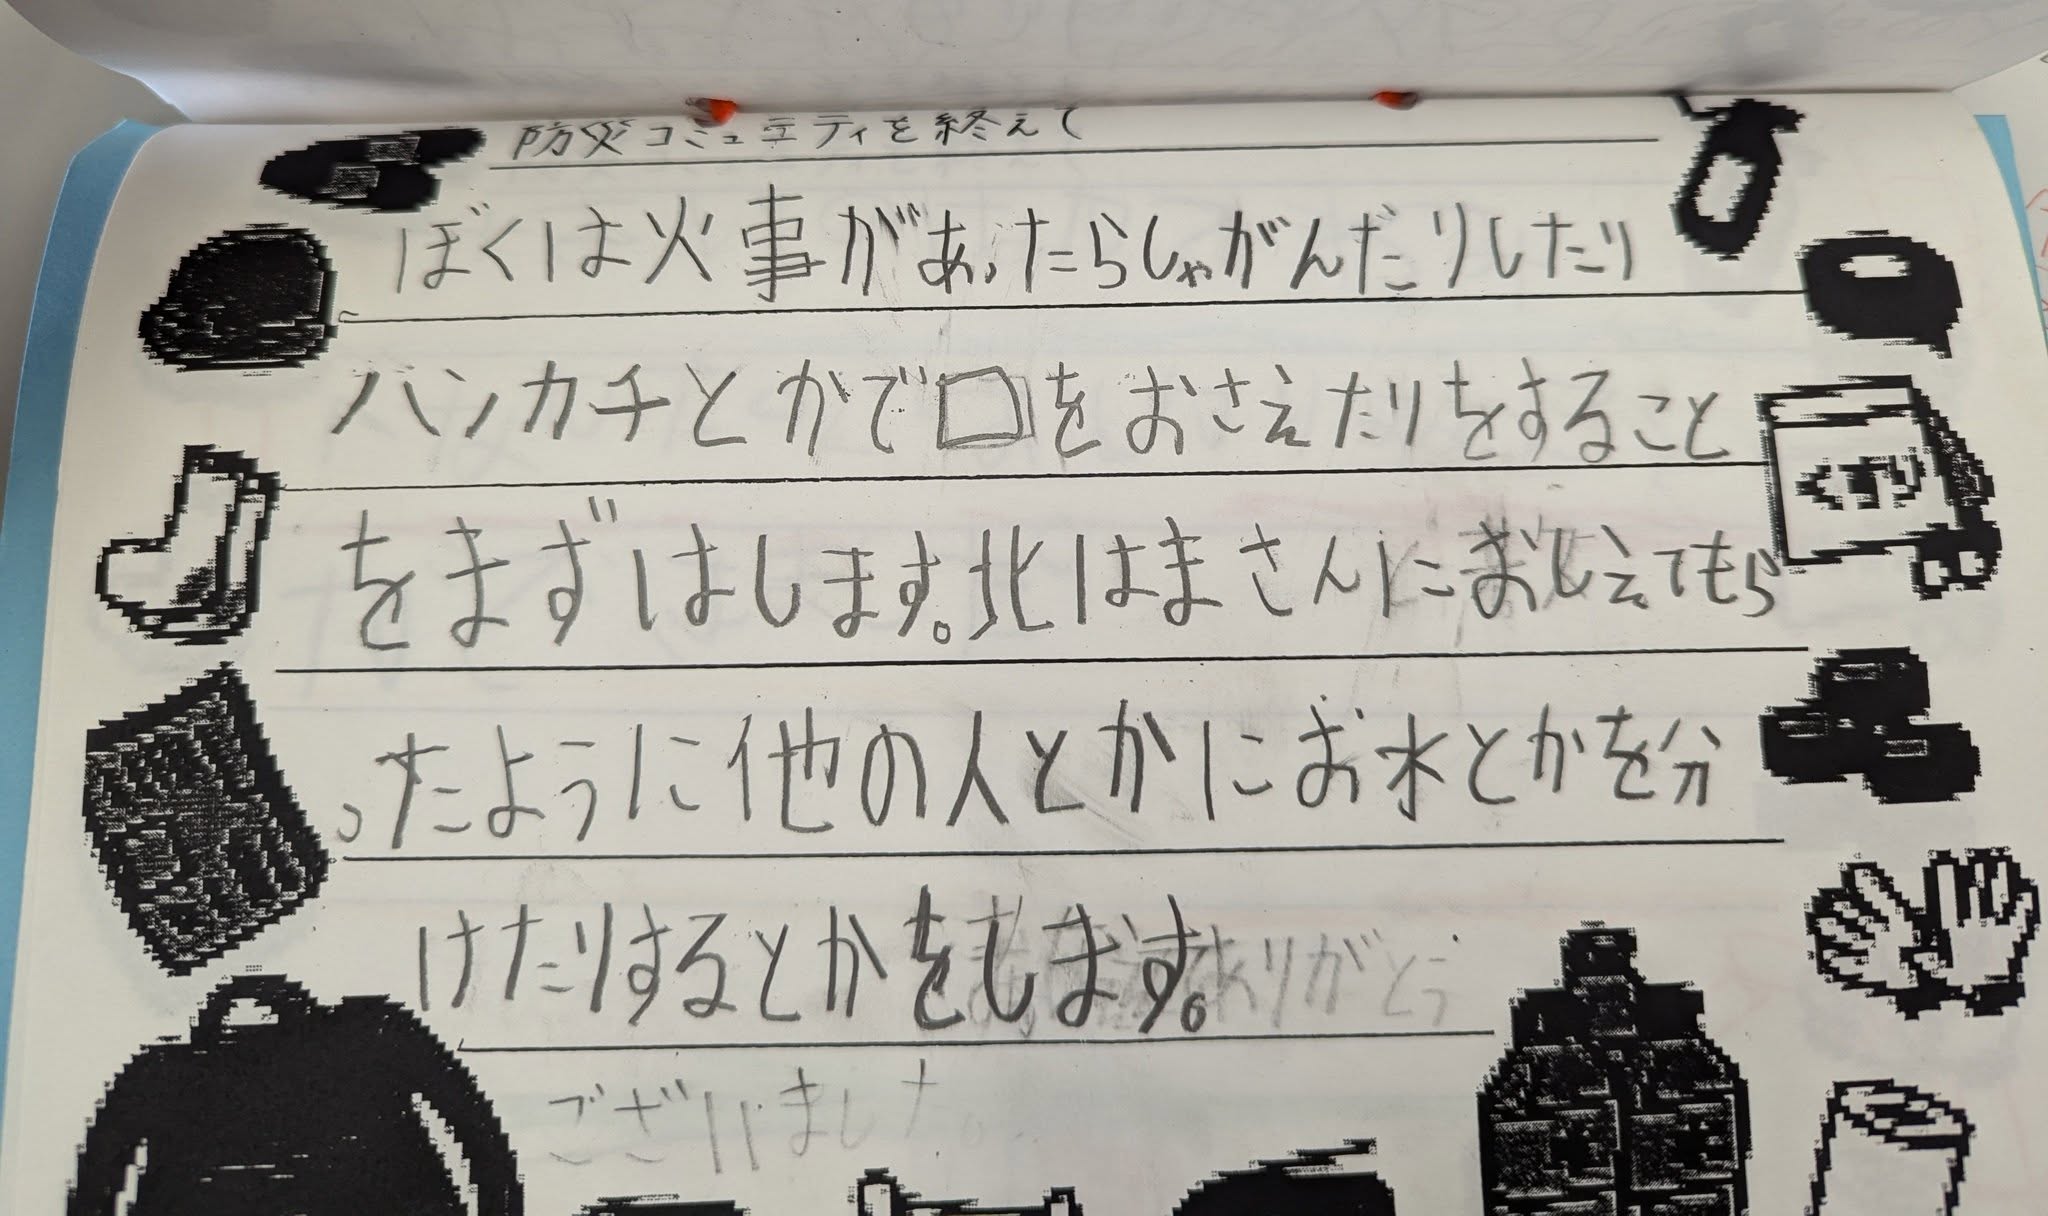 防災コミュニティを終えて
ぼくは火事があったらしゃがんだりしたり
ハンカチとかで口をおさえたりをすること
をまずはします。北はまさんにおしえてもら
ったように他の人とかにお水とかを分
けたりするとかをします。ありがとう
ございました。